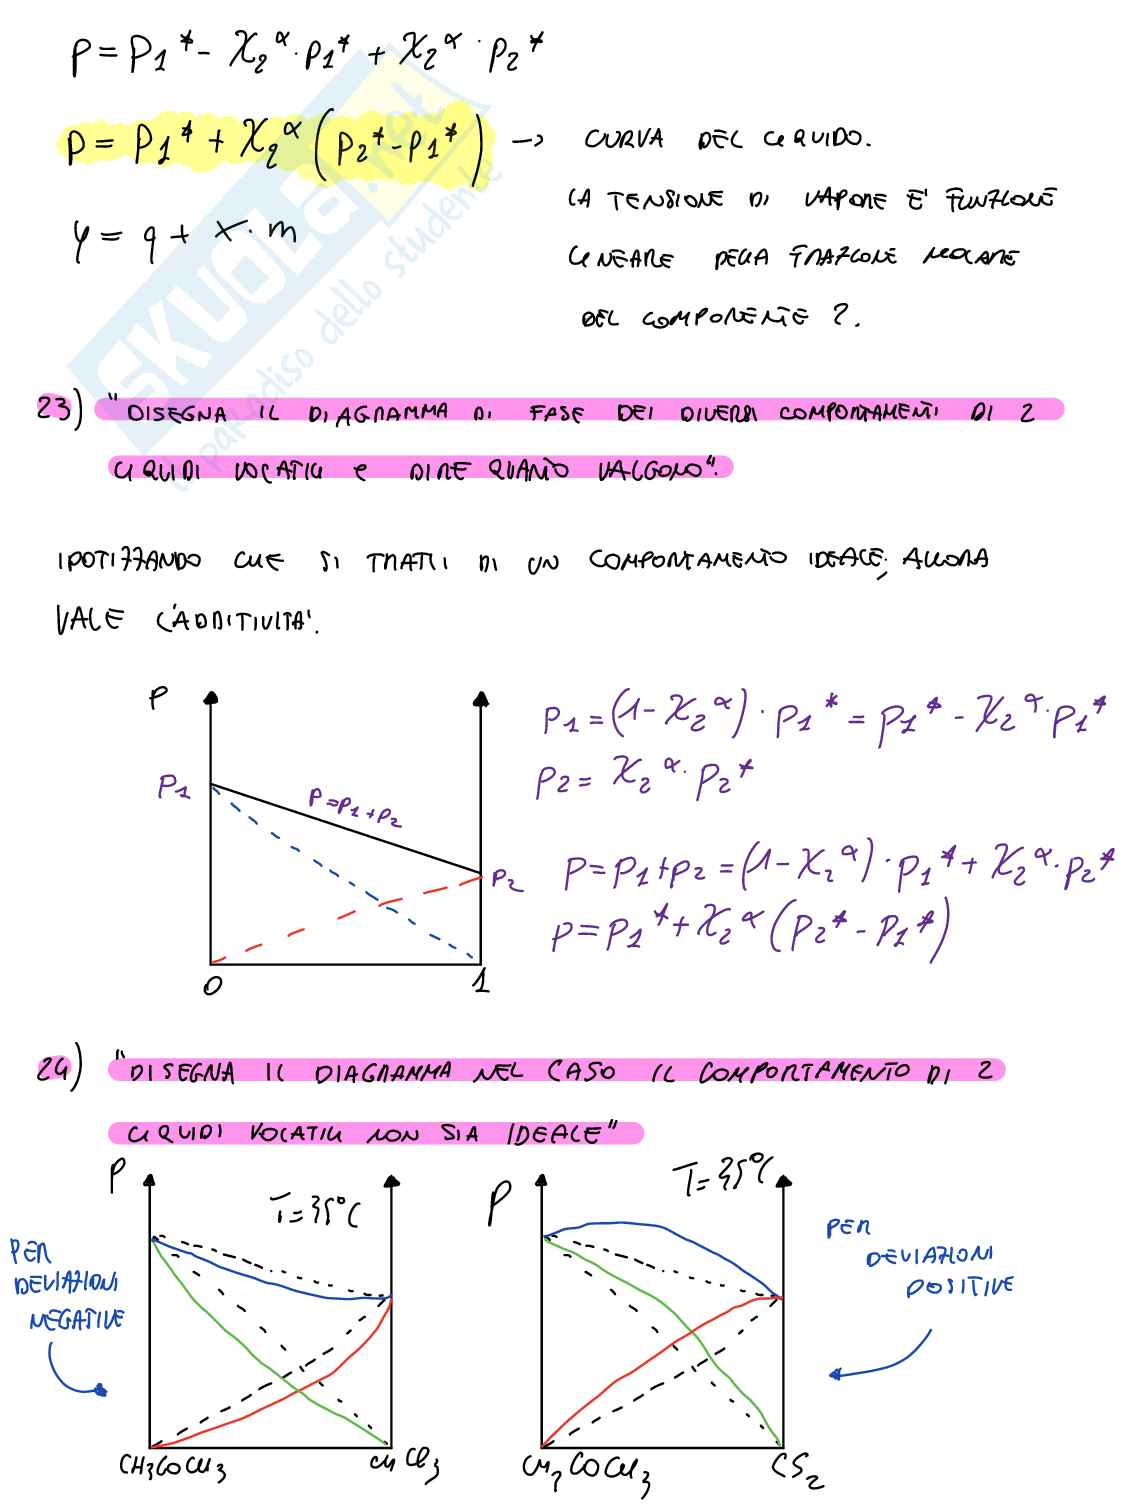 p = p₁* - χ₂^α · p₁* + χ₂^α · p₂*
p = p₁* + χ₂^α (p₂* - p₁*) → CURVA DEL LIQUIDO.
LA TENSIONE DI VAPORE E' FUNZIONE
y = q + x · m
LINEARE DELLA FRAZIONE MOLARE
DEL COMPONENTE 2.
SKUOLA.net
il paradiso dello studente
23) "DISEGNA IL DIAGRAMMA DI FASE DEI DIVERSI COMPORTAMENTI DI 2
LIQUIDI VOLATILI e DIRE QUANTO VALGONO".
IPOTIZZANDO CHE SI TRATTI DI UN COMPORTAMENTO IDEALE, ALLORA
VALE L'ADDITIVITA'.
P
P₁
P = P₁ + P₂
P₂
0 1
P₁ = (1 - χ₂^α) · P₁* = P₁* - χ₂^α · P₁*
P₂ = χ₂^α · P₂*
P = P₁ + P₂ = (1 - χ₂^α) · P₁* + χ₂^α · P₂*
P = P₁* + χ₂^α (P₂* - P₁*)
24) "DISEGNA IL DIAGRAMMA NEL CASO IL COMPORTAMENTO DI 2
LIQUIDI VOLATILI NON SIA IDEALE"
P
T = 35°C
PER
DEVIAZIONI
NEGATIVE
CH3COCH3 CHCl3
P
T = 35°C
PER
DEVIAZIONI
POSITIVE
CH3COCH3 CS2